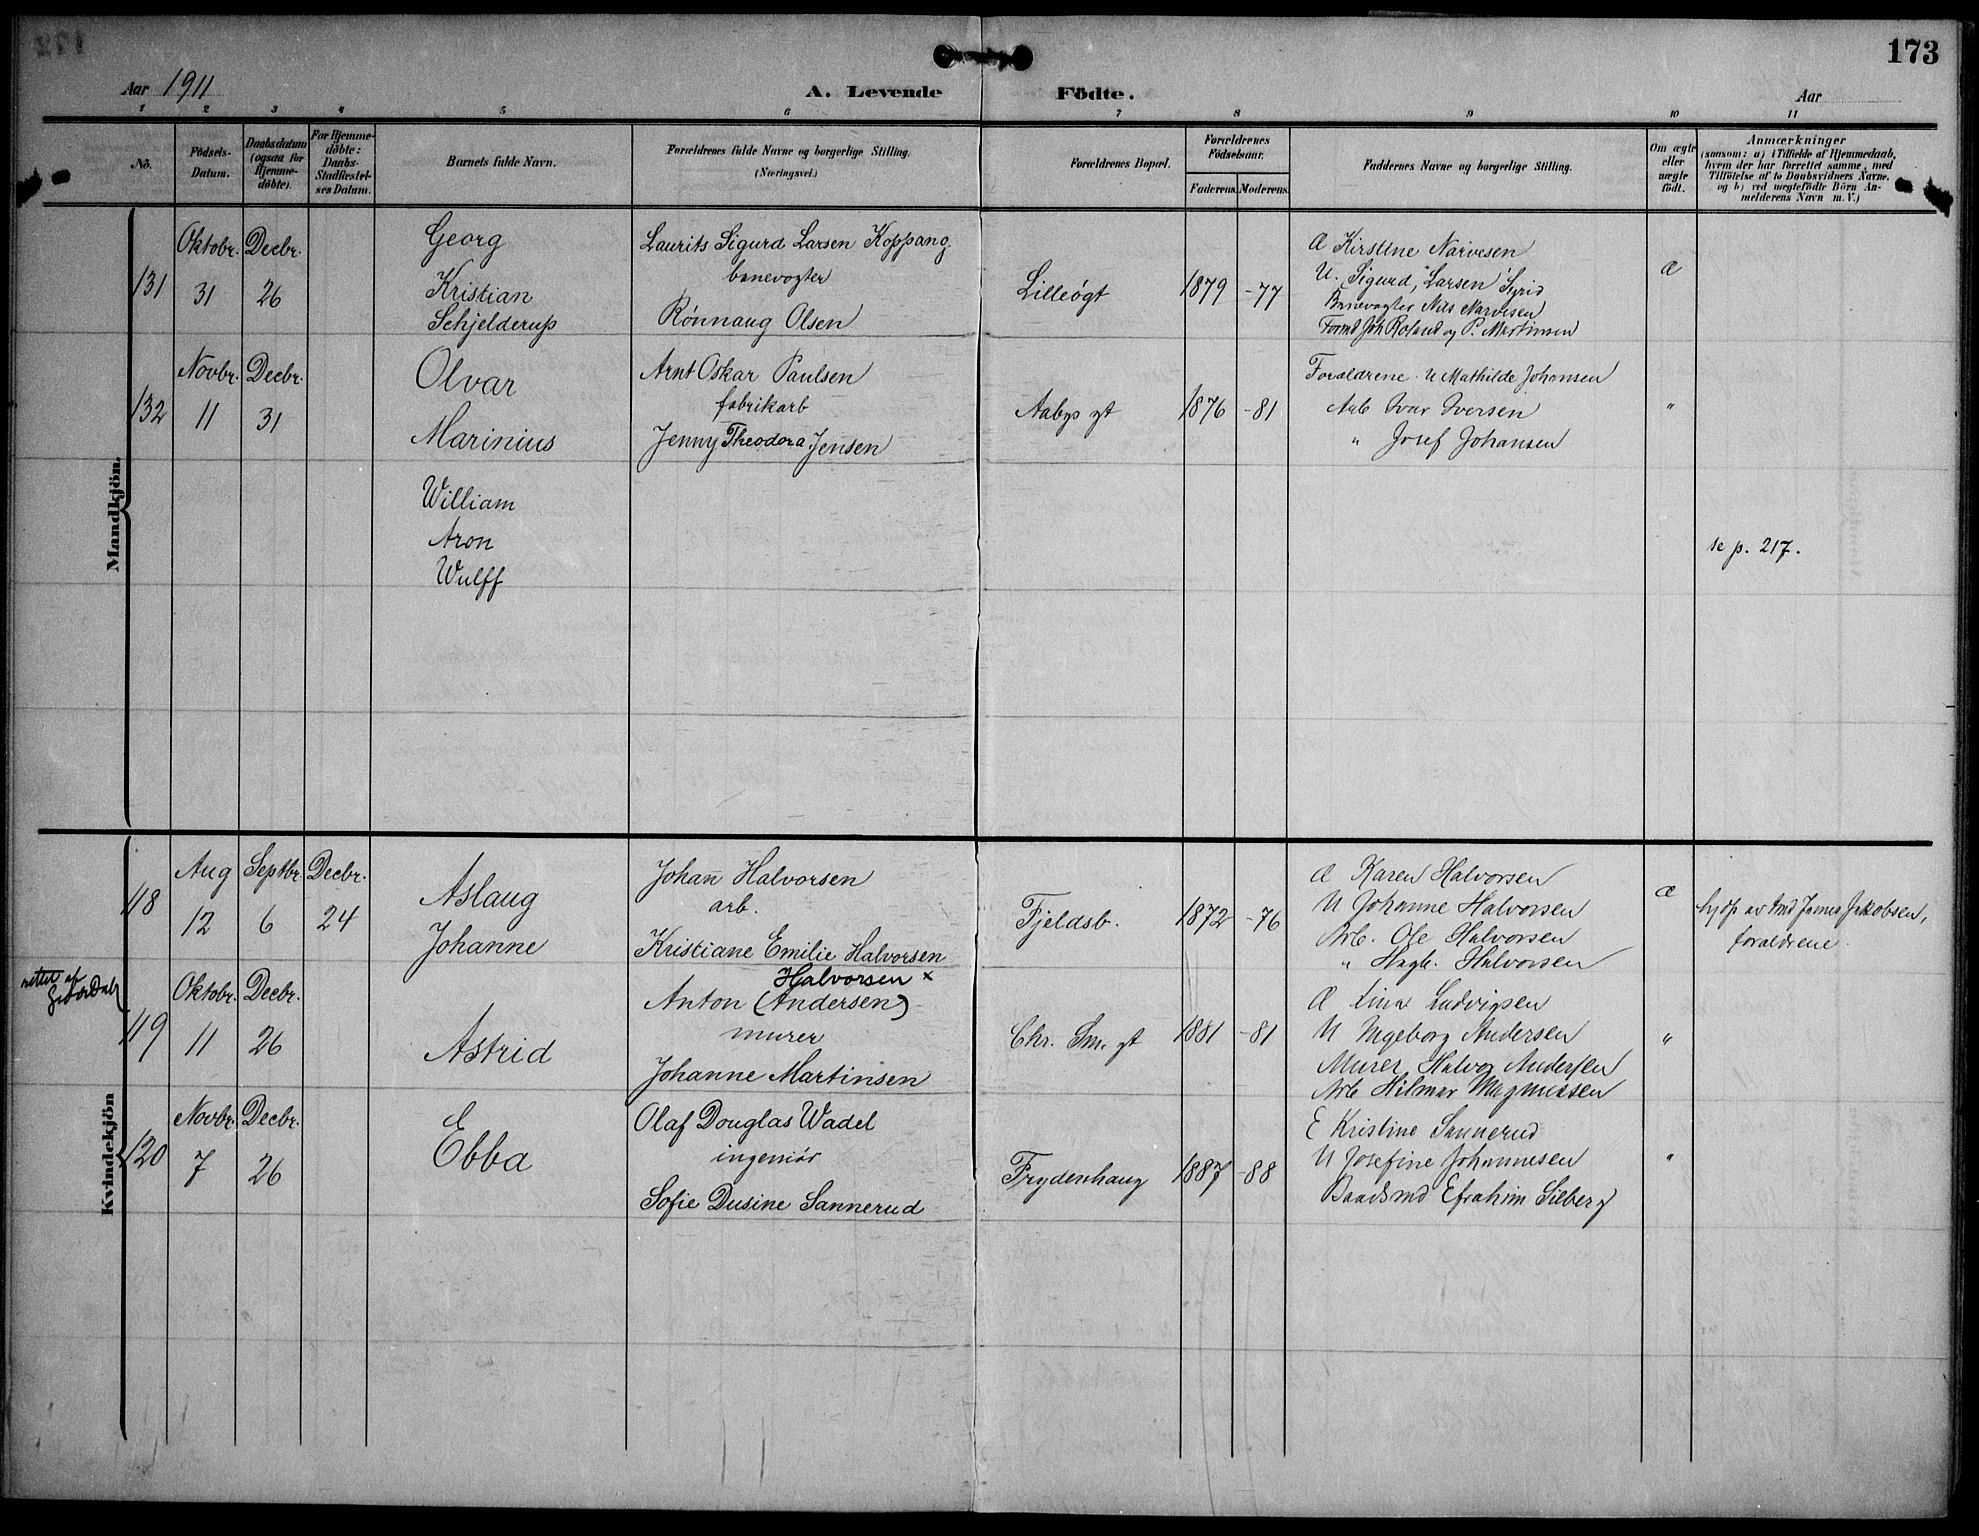 173
Aar 1911
A. Levende Födte.
Aar
1 2 3 4 5 6 7 8 9 10 11
No.
Födsels-Datum.
Daabsdatum (ogsaa for Hjemmedöbte).
For Hjemmedöbte: Daabs-Stadfæstelses Datum.
Barnets fulde Navn.
Forældrenes fulde Navne og borgerlige Stilling.
(Næringsvei.)
Forældrenes Bopæl.
Forældrenes Födselsaar.
Faderens. Moderens.
Faddernes Navne og borgerlige Stilling.
Om ægte eller uægte födt.
Anmærkninger
(saasom: a) i Tilfælde af Hjemmedaab,
hvem der har forrettet samme, med
Tilföielse af to Daabsvidners Navne.
og b) ved uægtefödte Börn An-
melderens Navn m. V.)
Mandkjön.
131
Oktobr. 31
Decbr. 26
Georg
Kristian
Schjelderup
Laurits Sigurd Larsen Koppang
banevogter
Rønnaug Olsen
Lilleøgt
1879 -77
Æ Kirstine Narvesen
U. Sigurd, Larsen Sigrid
Banevogter Nils Narvesen
Formd Joh Roland og P. Martinsen
Æ
132
Novbr. 11
Decbr. 31
Olvar
Marinius
Arnt Oskar Paulsen
fabrikarb
Jenny Theodora Jensen
Aabys gt
1876 -81
Forældrene. U Mathilde Johansen
Arb Ivar Iversen
" Josef Johansen
"
William
Aron
Wulff
se p. 217.
Kvindekjön
118
Aug 12
Septbr. 6
Decbr. 24
Aslaug
Johanne
Johan Halvorsen
arb.
Kristiane Emilie Halvorsen
Fjeldsb.
1872 -76
Æ Karen Halvorsen
U Johanne Halvorsen
Arb. Ole Halvorsen
" Hagb. Halvorsen
Æ
hjdp av Jmd James Jakobsen,
forældrene.
rettet af
119
Oktobr. 11
Decbr. 26
Astrid
Halvorsen x
Anton (Andersen)
murer
Johanne Martinsen
Chr. Sm. gt
1881 -81
Æ Lina Ludvigsen
U Ingeborg Andersen
Murer Halvor Andersen
Arb Hilmar Magnussen
"
120
Novbr. 7
Decbr. 26
Ebba
Olaf Douglas Wadel
ingeniør
Sofie Dusine Sannerud
Frydenhaug
1887 -88
E Kristine Sannerud
U Josefine Johannesen
Baadsmd Efrahim Silberg
"